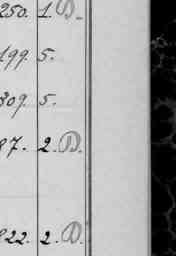 250. 1. D.
199. 5.
309. 5.
87. 2. D.
822. 2. D.